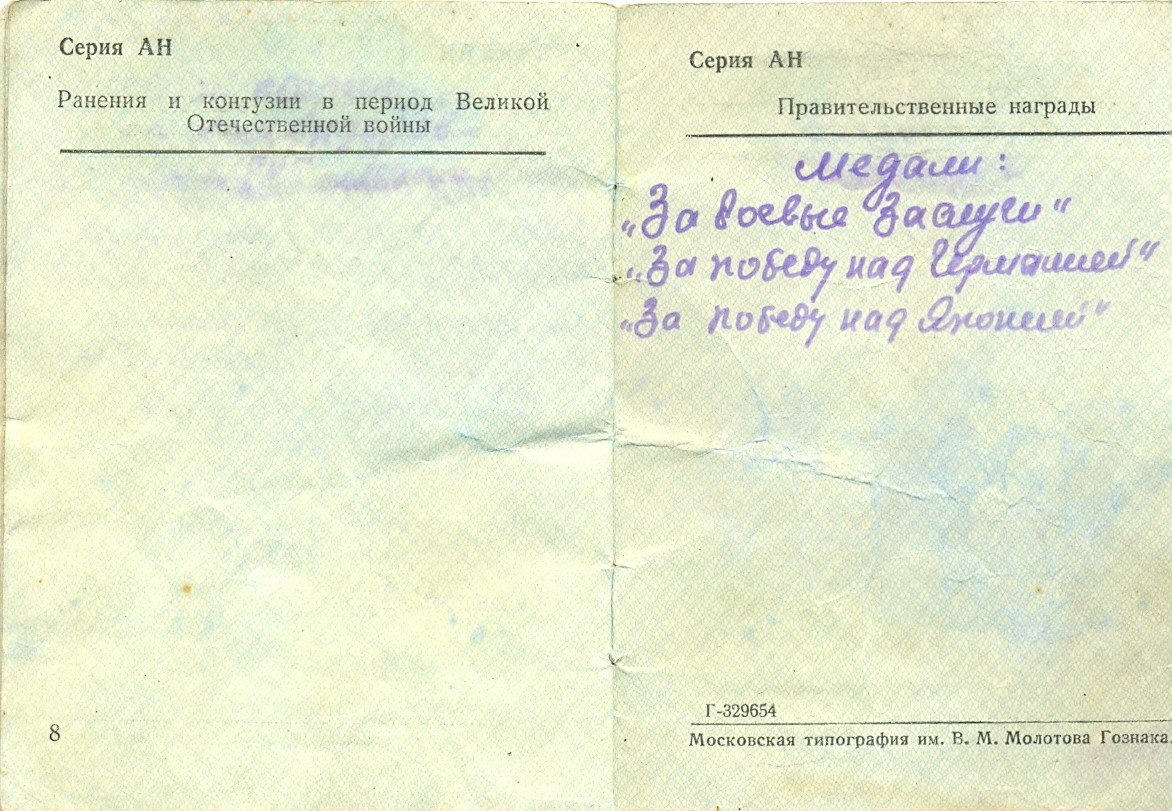 Серия АН
Ранения и контузии в период Великой
Отечественной войны
8
Серия АН
Правительственные награды
Медали:
„За боевые Заслуги"
„За победу над Германией"
„За победу над Японией"
Г-329654
Московская типография им. В. М. Молотова Гознака.